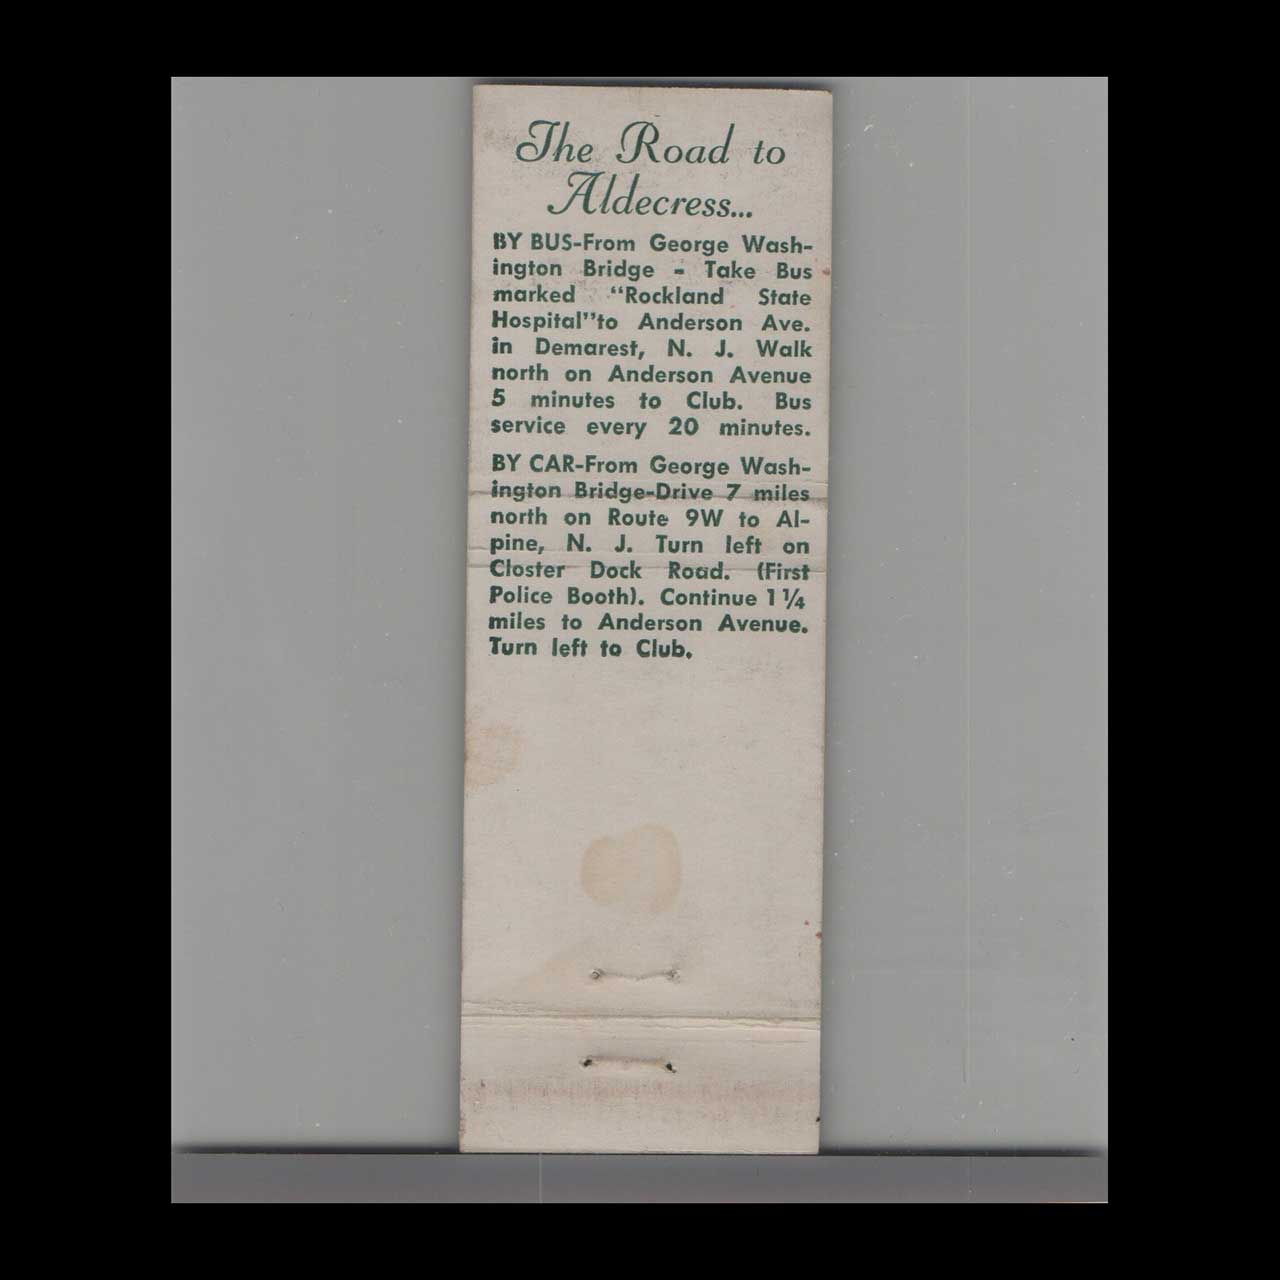 The Road to
Aldecress...
BY BUS-From George Wash-
ington Bridge - Take Bus
marked "Rockland State
Hospital"to Anderson Ave.
in Demarest, N. J. Walk
north on Anderson Avenue
5 minutes to Club. Bus
service every 20 minutes.
BY CAR-From George Wash-
ington Bridge-Drive 7 miles
north on Route 9W to Al-
pine, N. J. Turn left on
Closter Dock Road. (First
Police Booth). Continue 1¼
miles to Anderson Avenue.
Turn left to Club.